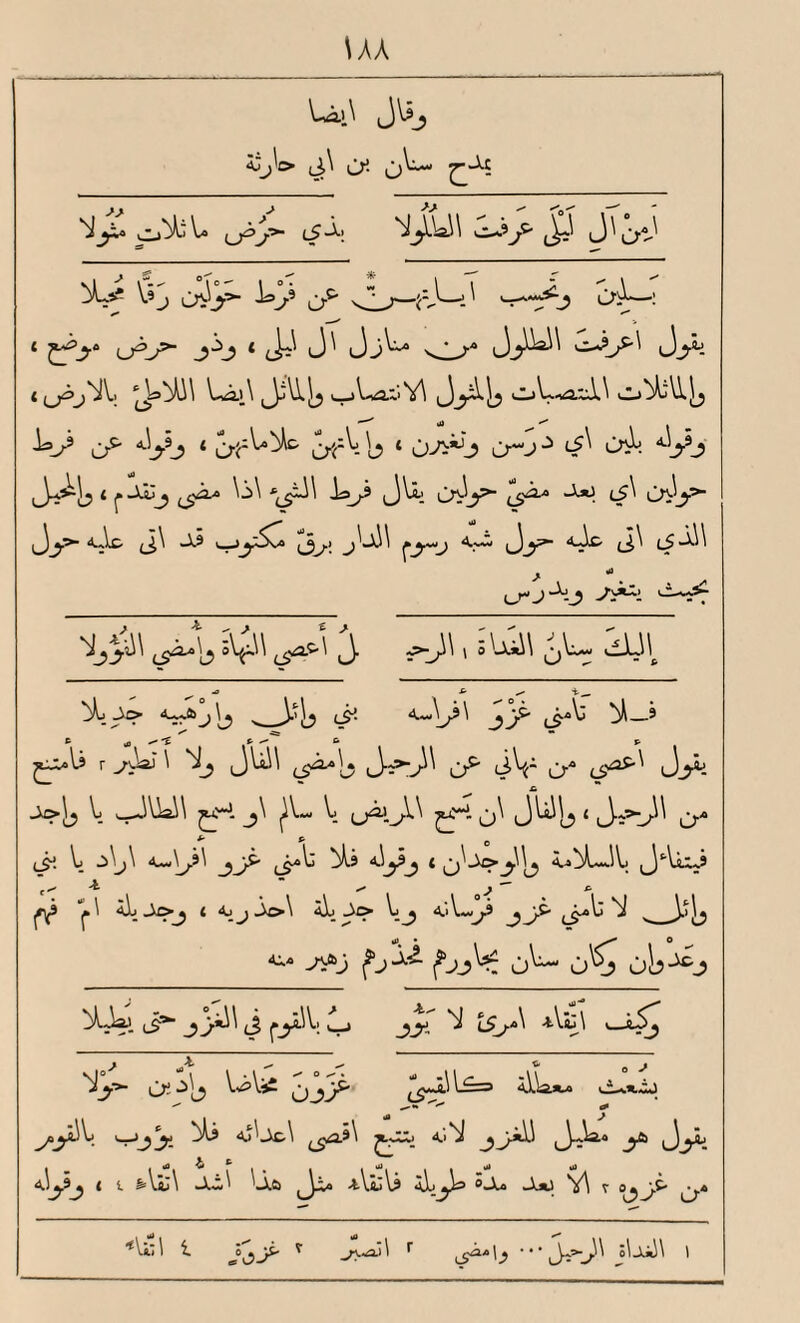 ١٨٨
وقال ايضا
يمدح سنان بن ابي حارثة
أَمِنْ آلِ لَيْلَى عَرَفْتَ الطُّلُولَا بِذِي حُرُضٍ مَاثِلَاتٍ مُثُولَا
بَلِينَ وَتَحْسِبُ آيَاتِهِنَّ * عَنْ فَرْطِ حَوْلَيْنِ رَقًّا مُحِيلَا
يقول أعرفت الطلول من منازل آل ليلى ، وذو حرض موضع ،
والماثلات المنتصبات والمثول الانتصاب والماثل ايضا اللاطئ بالارض ،
وقوله بلين اي درسن وتغيرن ، وآياتهن علاماتهن ، وقوله عن فرط
حولين اي بعد مضي حولين يقال فرط الشيء اذا مضى وتقدم ، والمحيل
الذي اتى عليه حول شبه رسوم الدار برق مكتوب قد اتى عليه حول
بحيث يتغير ويدرس
إِلَيْكَ سِنَانُ الغَدَاةَ ١ الرَّحِيـ ـلُ أَعْصِي النُّهَاةَ وَأُمْضِي الفُؤُولَا
فَلَا تَأْمَنِي غَزْوَ أَفْرَاسِهِ بَنِي وَائِلٍ وَارْهَبِيهِ جَدِيلَا
يقول أعصي من نهاني عن الرحيل وأمضي الفأل ولا أتطير ٢ فامتنع
من الرحيل ، والفأل ان يسمع المريض يا سالم او يسمع الطالب يا واجد
فيتفاءل بالسلامة والوجدان ، وقوله فلا تأمني غزو أفراسه أراد يا بني
وائل لا تأمني غزو فرسانه ويا جديلة احذريه ، وجديلة أم فهم
وعدوان وكان سنان مجاورهم فحذرهم زهير منه
وَكَيْفَ اتِّقَاءُ امْرِئٍ لَا يَؤُوبُ بِالقَوْمِ فِي الغَزْوِ حَتَّى يُطِيلَا
بِشُعْثٍ مُعَطَّلَةٍ كَالقِسِيِّ غَزَوْنَ مَخَاضًا وَأُدِّينَ حُولَا
يقول هو مطيل للغزو لأنه يتتبع أقصى أعدائه فلا يؤوب بالقوم
من غزوه ٣ إلا بعد مدة طويلة فاتقاء مثل هذا أشد اتقاء ٤ ، وقوله
١ الغداة الرحيل ... وامضي ٢ اتصبر ٣ غزوة ٤ اتقاء